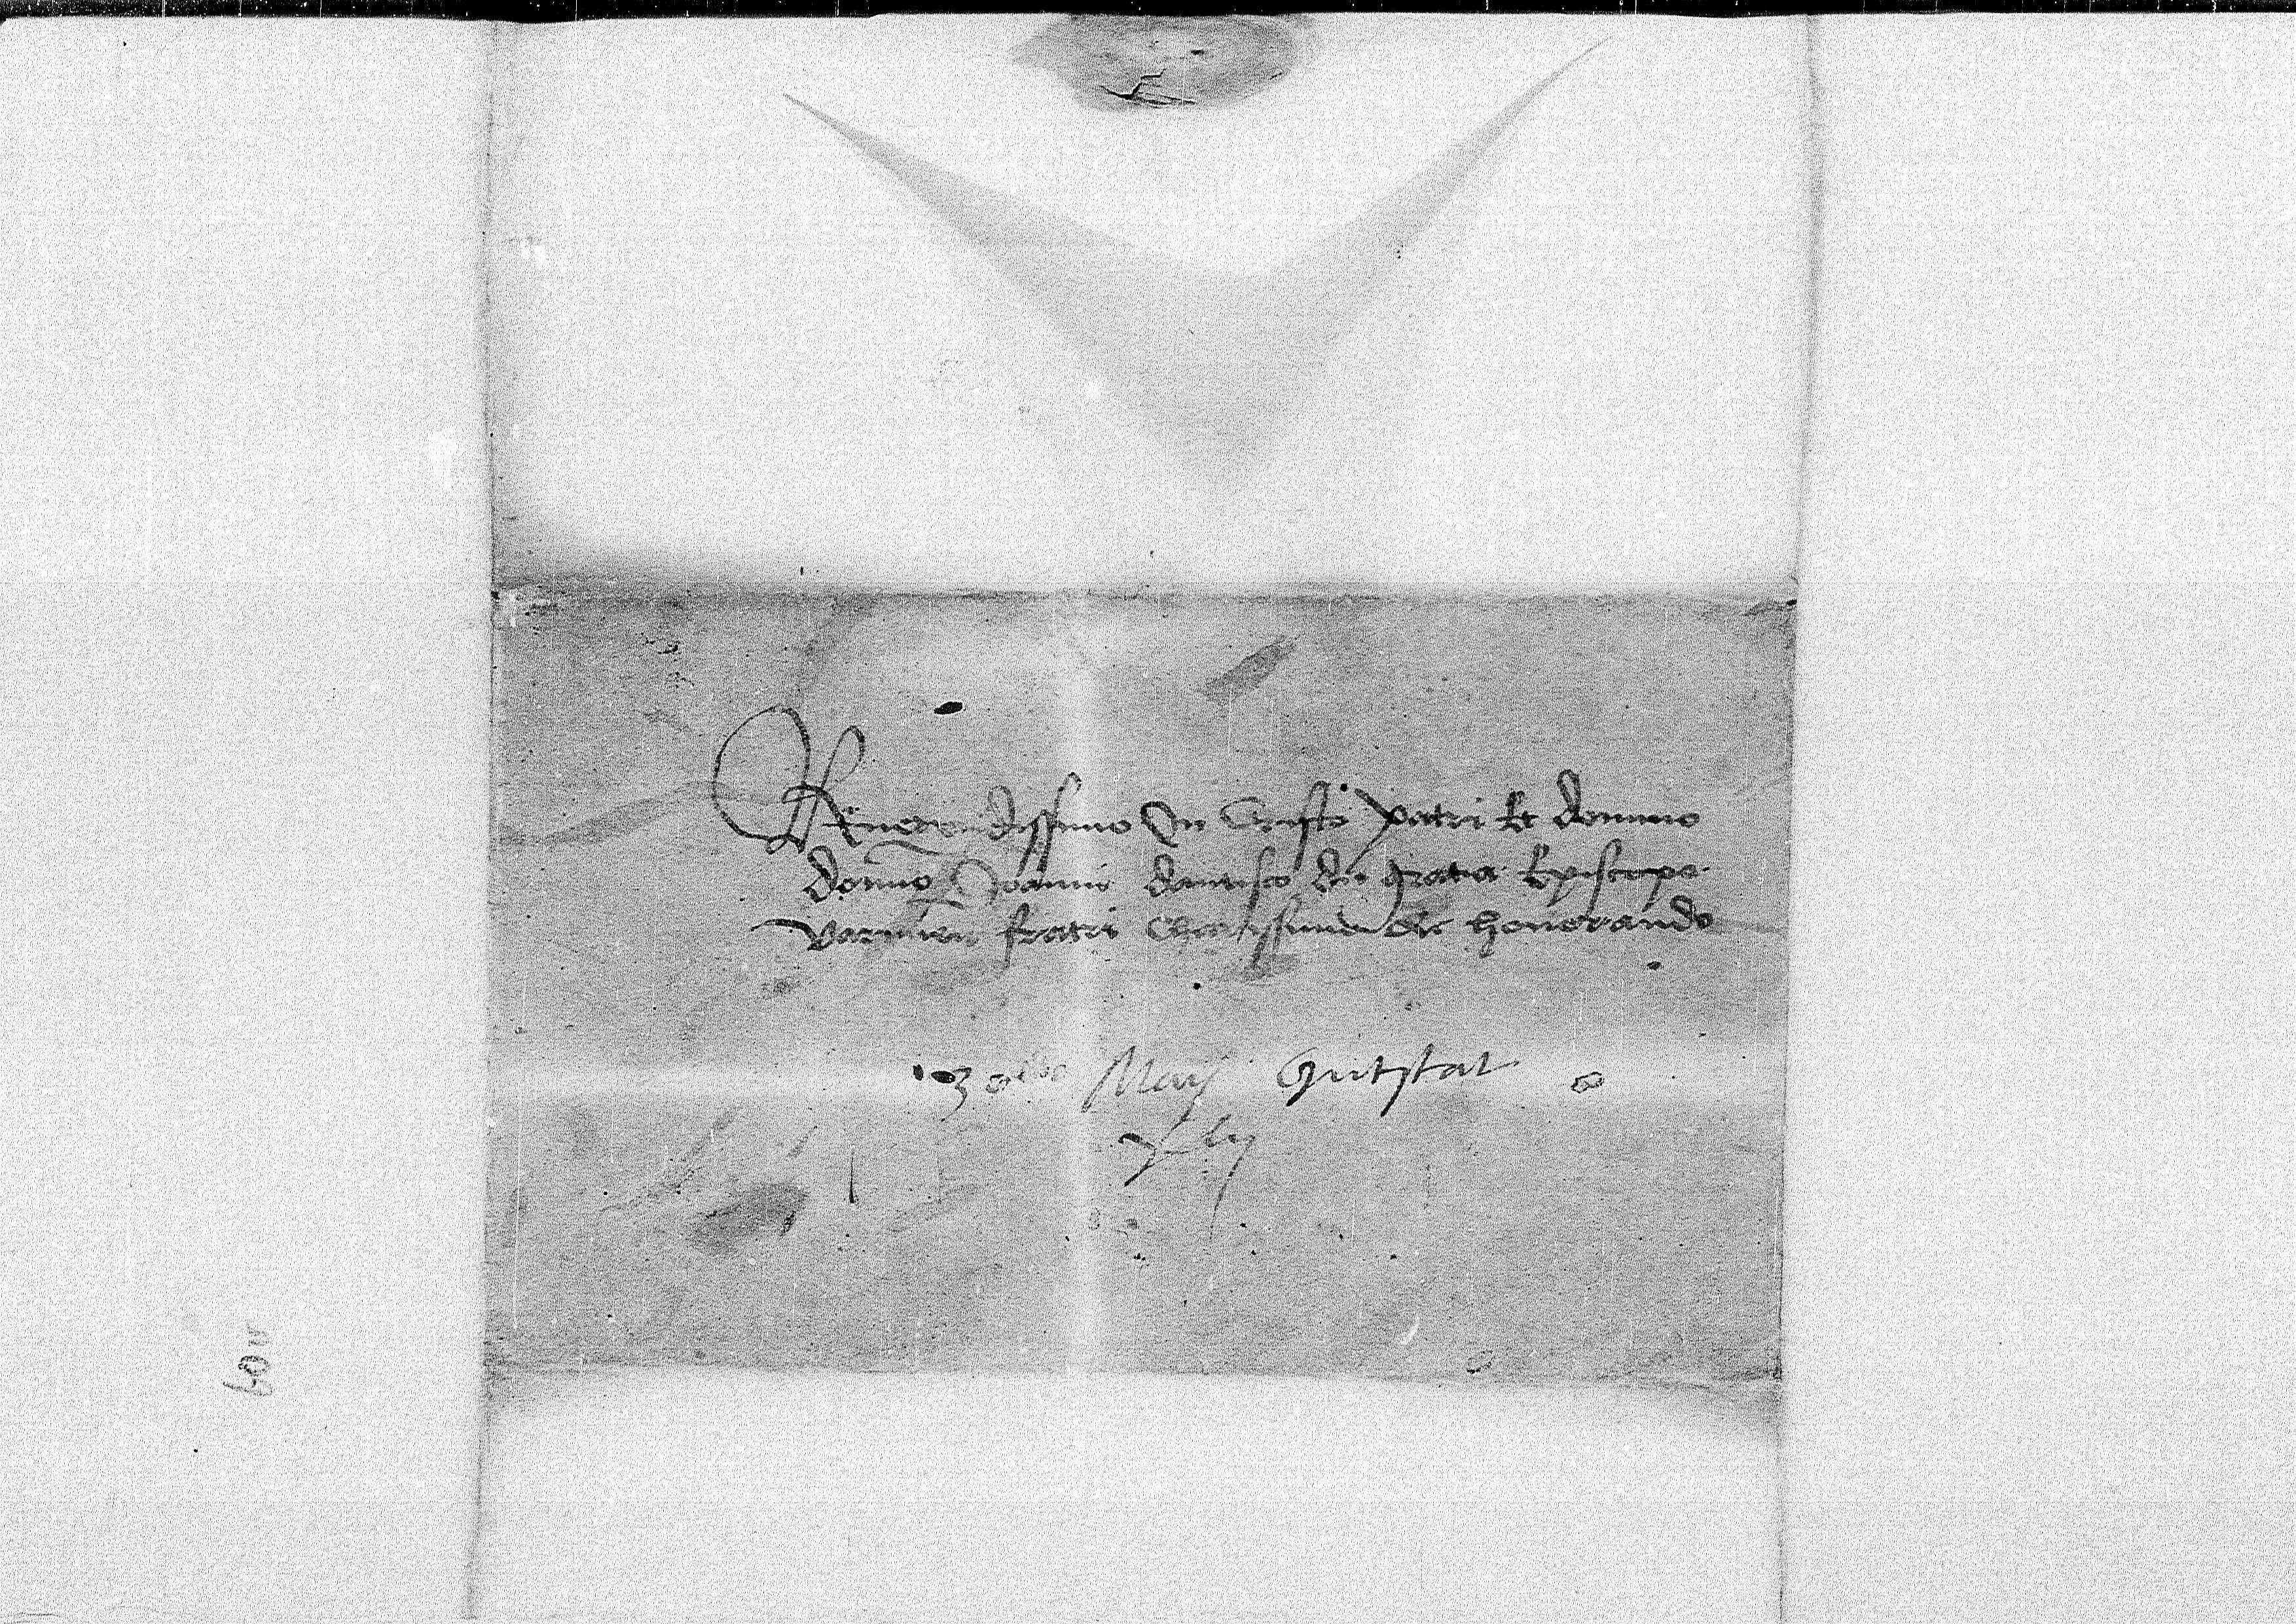 Reuerendissimo In Cristo patri Et domino
domino Joanni dantisco dei gratia Episcopo
varmien fratri Charissimo ac honorando
30 May Gutstat
109